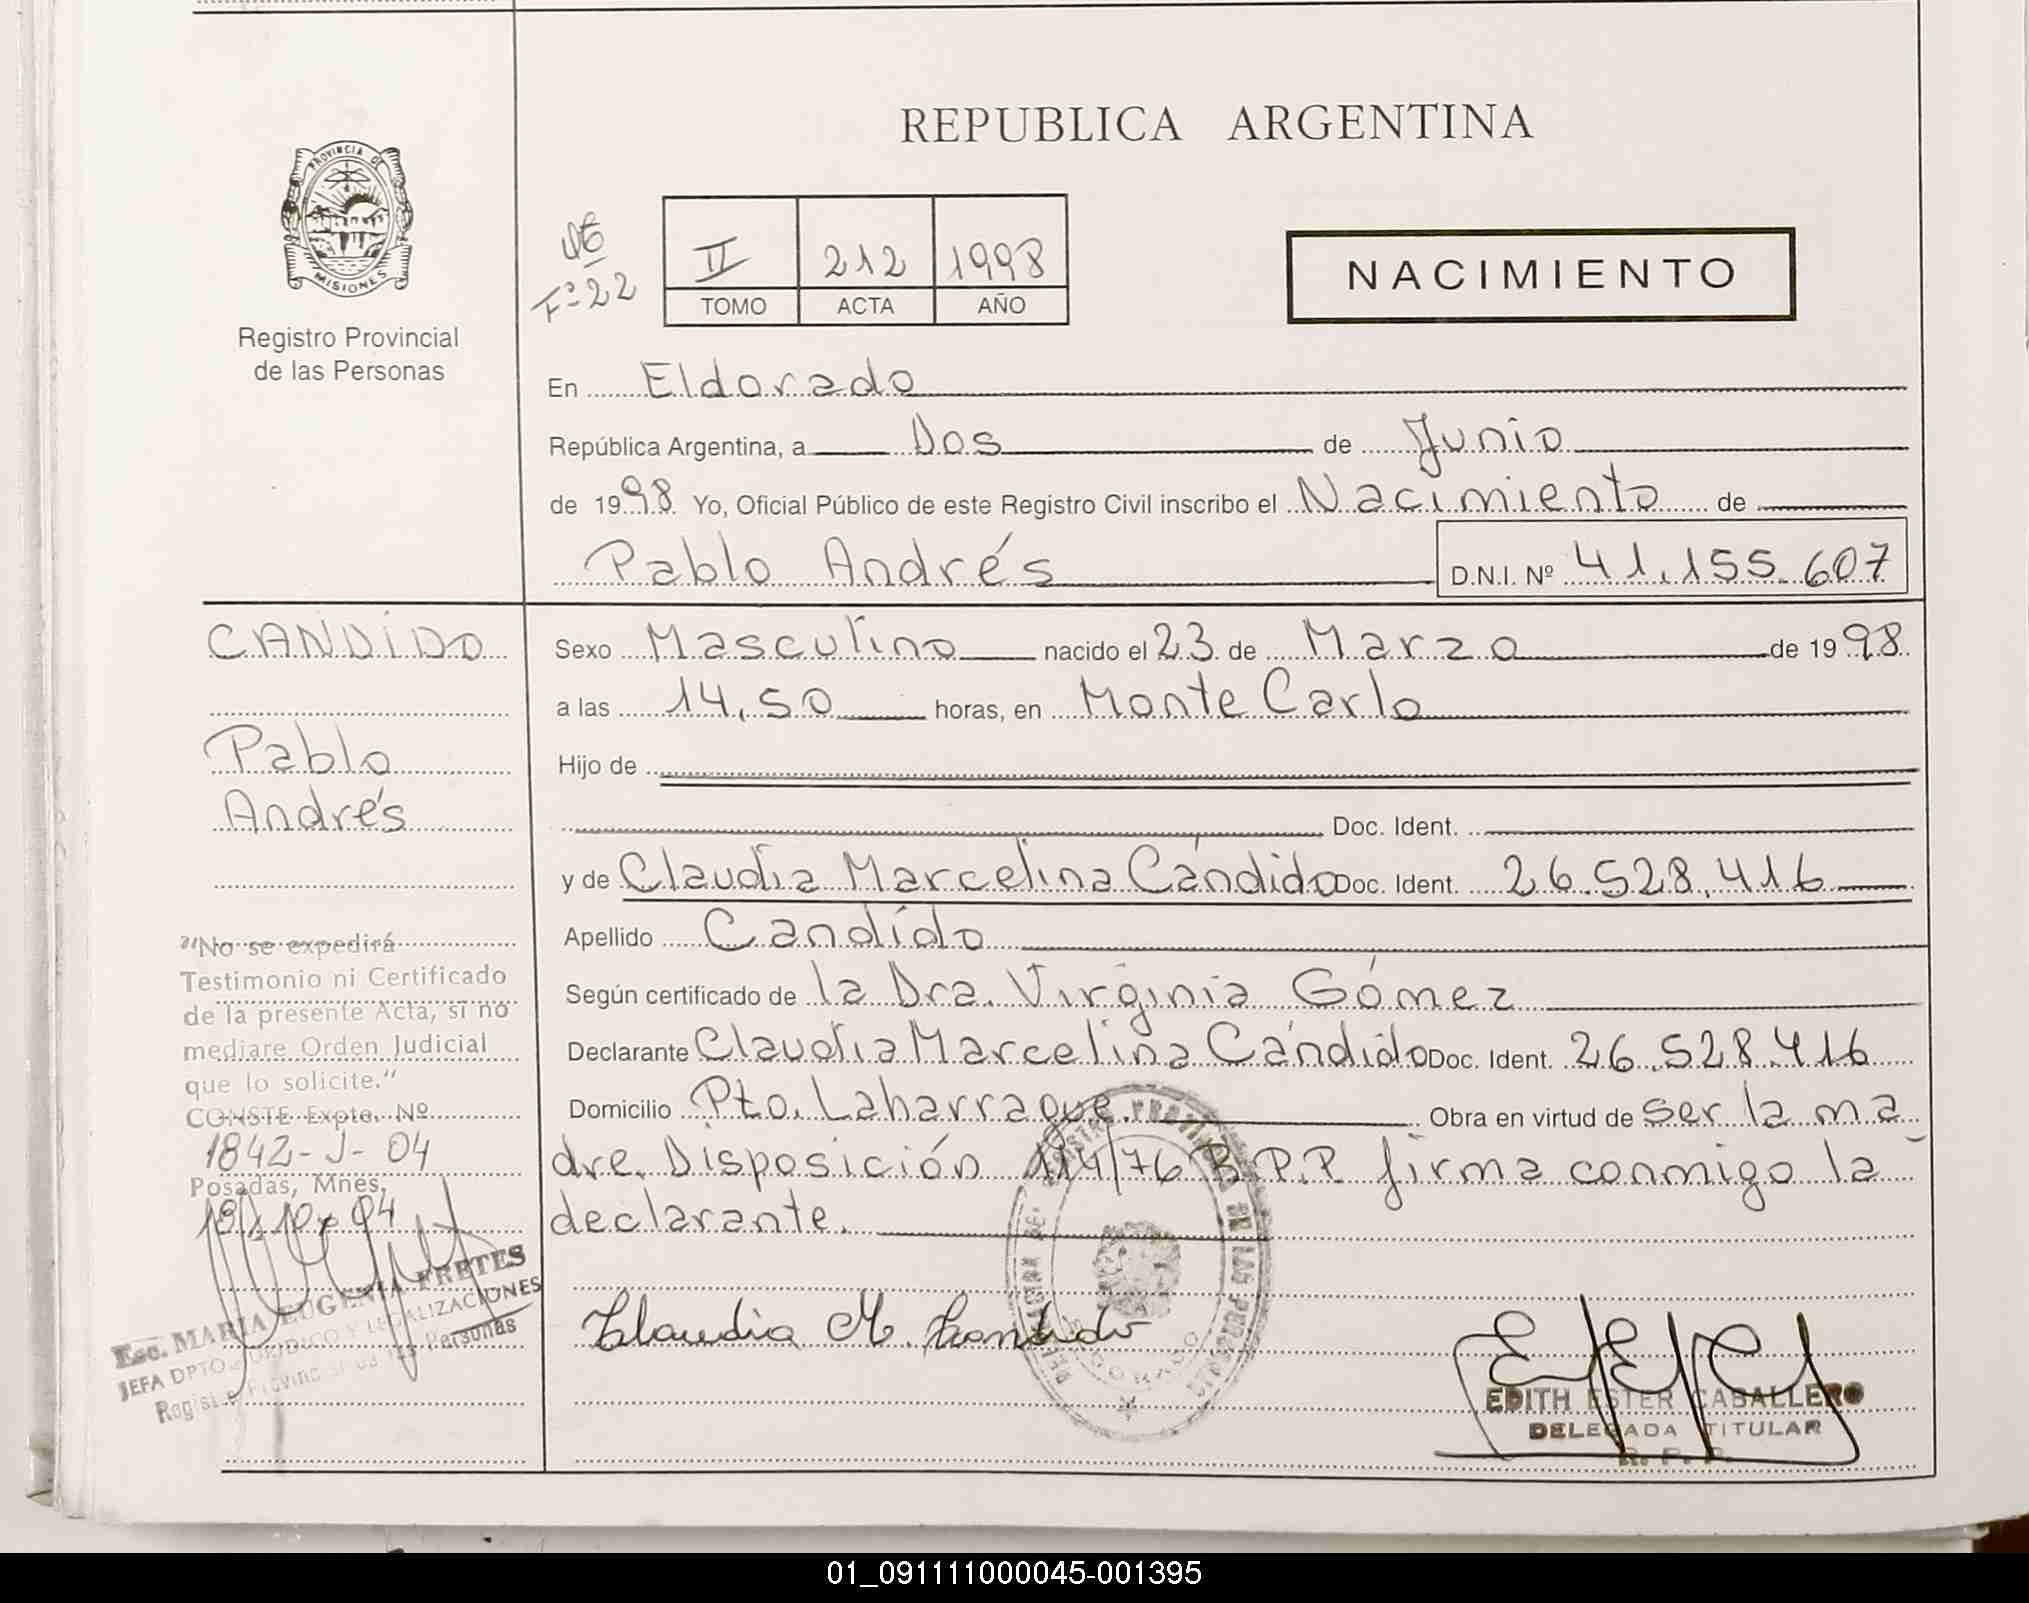 PROVINCIA DE
MISIONES
Registro Provincial
de las Personas
REPUBLICA ARGENTINA
Fº 22
II 212 1998
TOMO ACTA AÑO
NACIMIENTO
En Eldorado
República Argentina, a Dos de Junio
de 1998 Yo, Oficial Público de este Registro Civil inscribo el Nacimiento de
Pablo Andrés D.N.I. Nº 41.155.607
CANDIDO
Pablo
Andrés
Sexo Masculino nacido el 23 de Marzo de 1998
a las 14,50 horas, en Monte Carlo
Hijo de
Doc. Ident.
y de Claudia Marcelina Cándido Doc. Ident. 26.528.416
Apellido Candido
Según certificado de la Dra. Virginia Gómez
Declarante Claudia Marcelina Cándido Doc. Ident. 26.528.416
Domicilio Pto. Laharrague. Obra en virtud de ser la ma
dre. Disposición 114/76 R.P.P. firma conmigo la
declarante.
"No se expedirá
Testimonio ni Certificado
de la presente Acta, si no
mediare Orden Judicial
que lo solicite."
CONSTE Expte. Nº
1842-J-04
Posadas, Mnes.
18-10-04
Esc. MARIA EUGENIA FRETES
JEFA DPTO JURIDICO Y LEGALIZACIONES
Registro Provincial de las Personas
Claudia M. Candido
REGISTRO PROVINCIAL DE LAS PERSONAS
ELDORADO
EDITH ESTER CABALLERO
DELEGADA TITULAR
R. P. P.
01_091111000045-001395